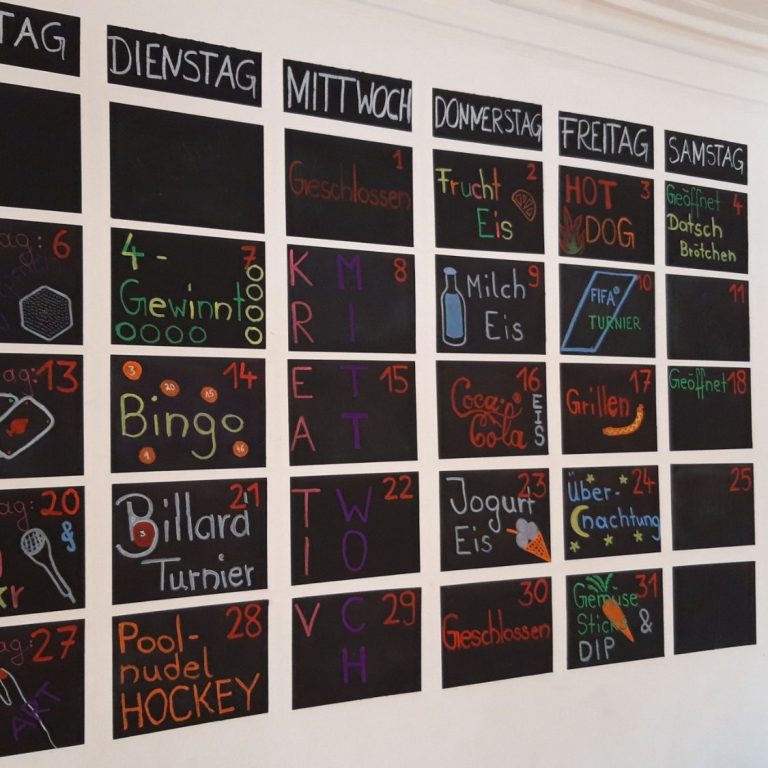 TAG DIENSTAG MITTWOCH DONNERSTAG FREITAG SAMSTAG
1
Geschlossen
2
Frucht
Eis
3
HOT
DOG
Geöffnet 4
Datsch
Brötchen
ag: 6
7
4 -
Gewinnt
8
K M
R I
9
Milch
Eis
10
FIFA
TURNIER
11
ag: 13
14
3 20 15
Bingo
1 46
15
E T
A T
16
Coca
Cola
EIS
17
Grillen
Geöffnet 18
ag: 20
&
kr
21
Billard
3
Turnier
22
T W
I O
23
Jogurt
Eis
24
Über-
nachtung
25
ag: 27
ART
28
Pool-
nudel
HOCKEY
29
V C
H
30
Geschlossen
31
Gemüse
Sticks &
DIP